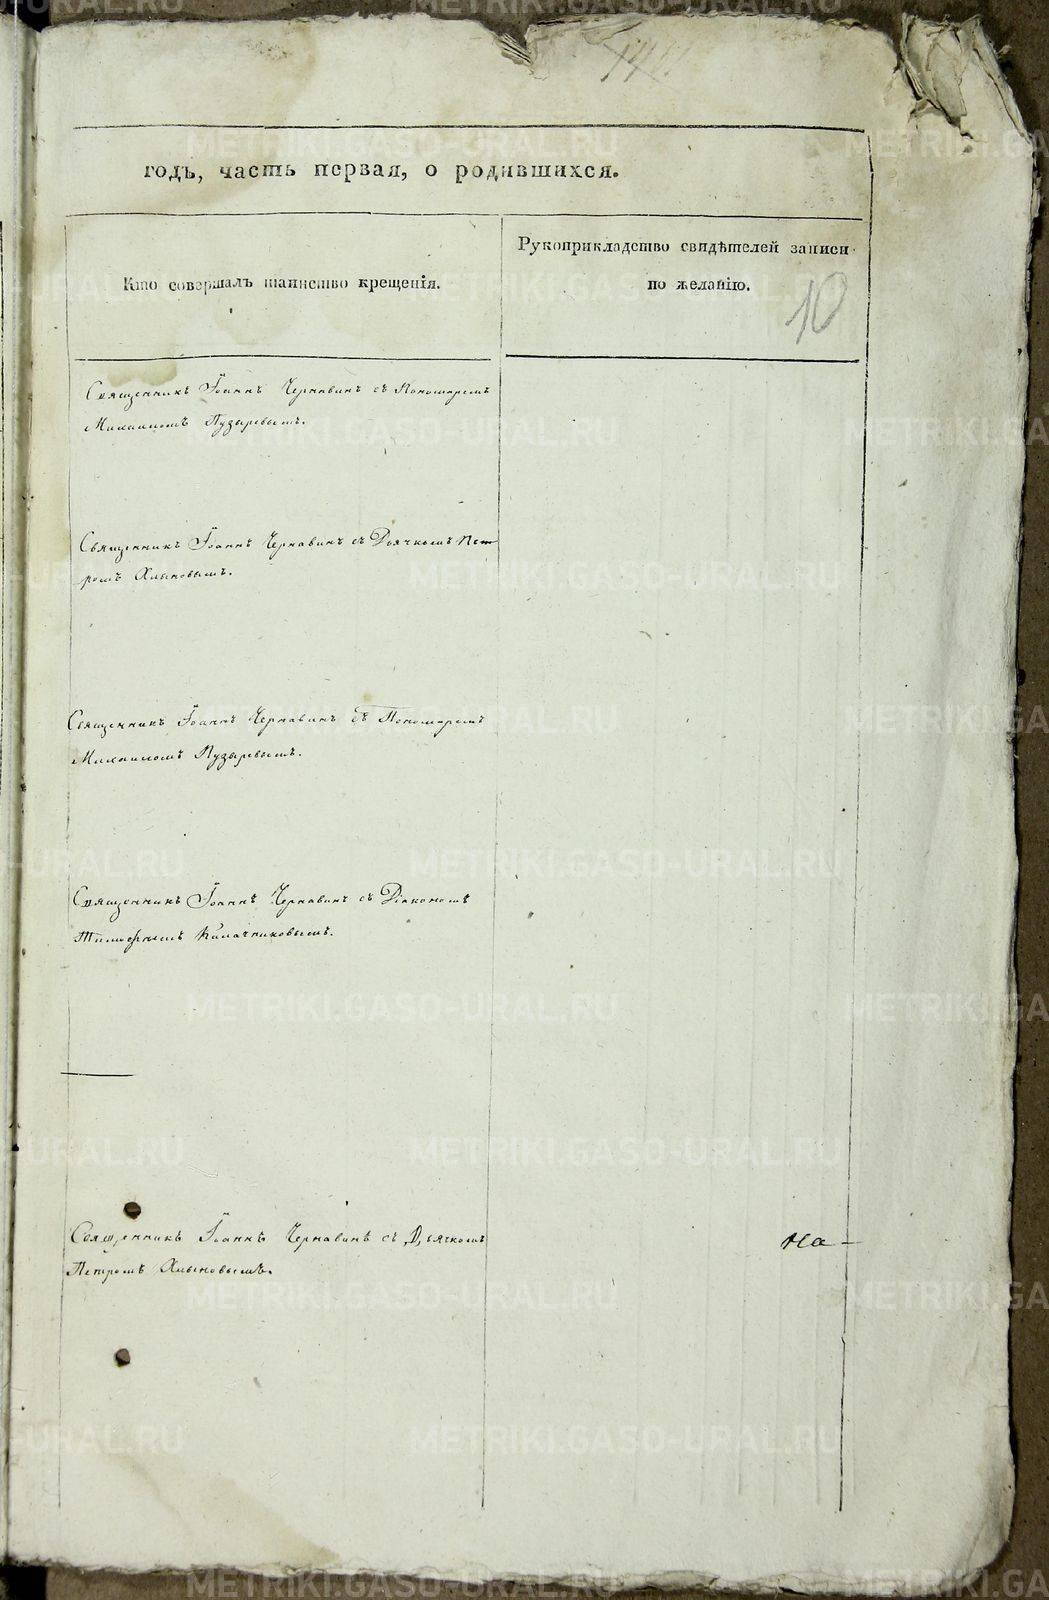 годъ, часть первая, о родившихся.
Кто совершалъ таинство крещенія.
Рукоприкладство свидѣтелей записи
по желанію.
10
Священникъ Іоаннъ Чернавинъ съ Пономаремъ
Михаиломъ Пузыревымъ.
Священникъ Іоаннъ Чернавинъ съ Дьячкомъ Пет-
ромъ Хлыновымъ.
Священникъ Іоаннъ Чернавинъ съ Пономаремъ
Михаиломъ Пузыревымъ.
Священникъ Іоаннъ Чернавинъ съ Діакономъ
Тимофеемъ Калачниковымъ.
Священникъ Іоаннъ Чернавинъ съ Дьячкомъ
Петромъ Хлыновымъ.
на-
METRIKI.GASO-URAL.RU